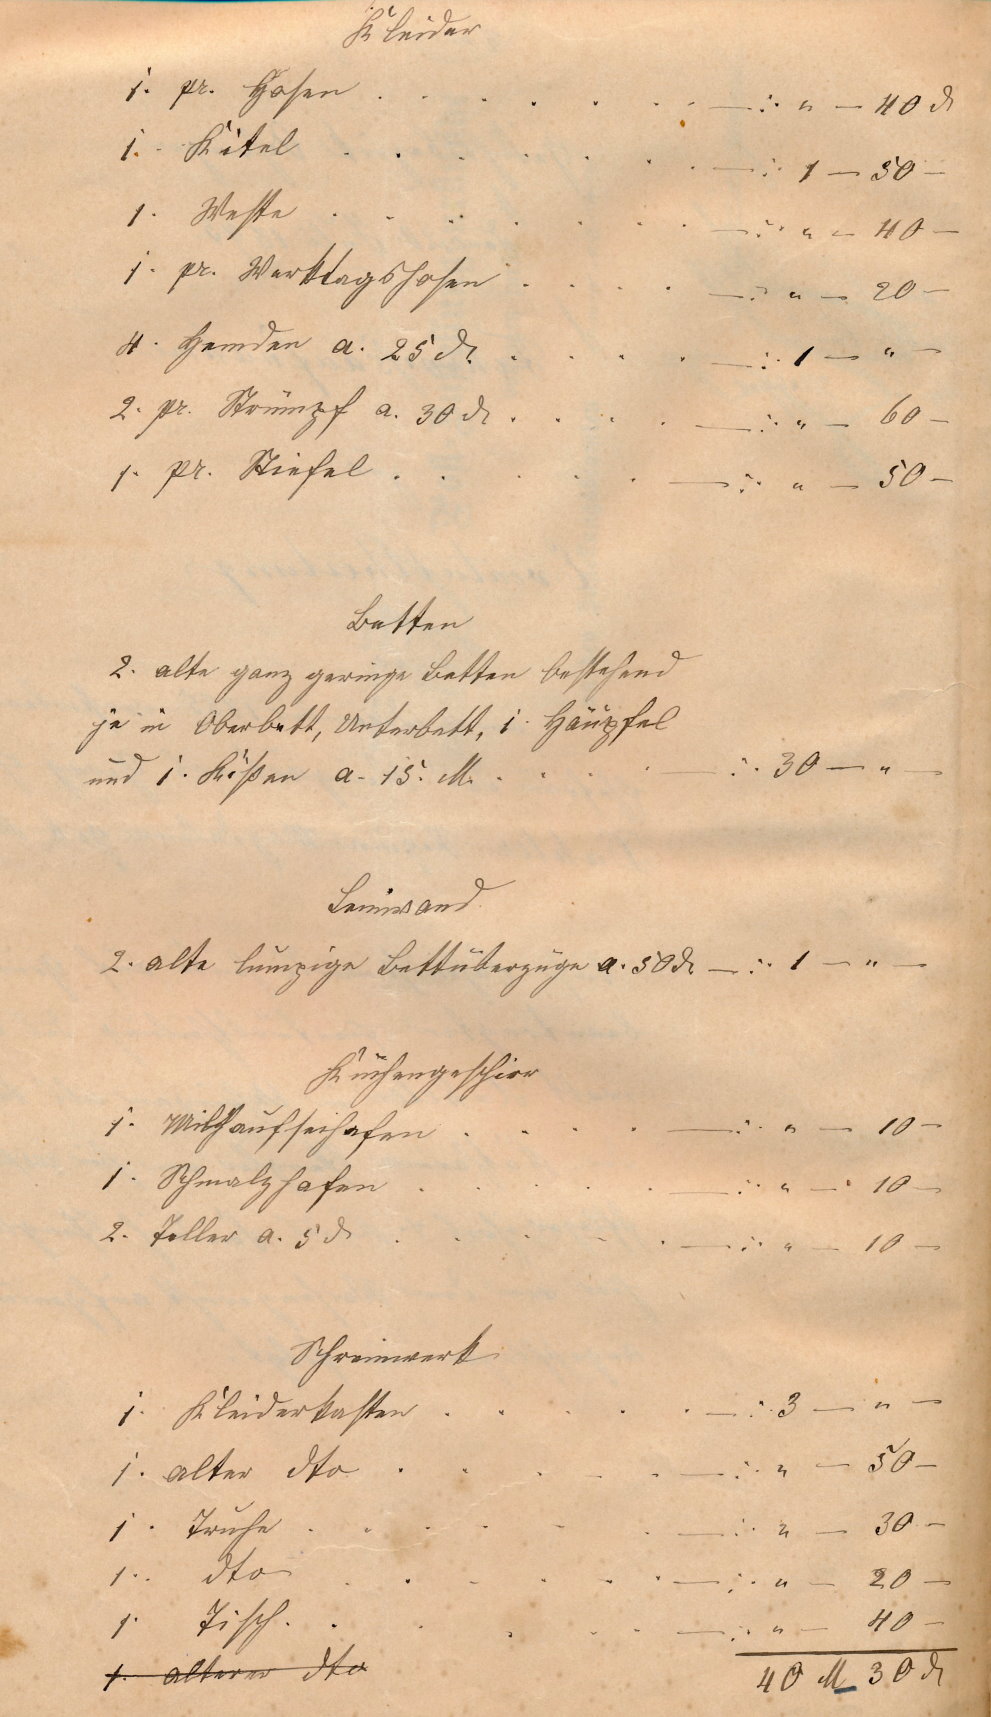 Kleider
1. pr. Hosen . . . . . . . — : . " — 40 d
1. Kitel . . . . . . . — : . 1 — 50 —
1. Weste . . . . . . . — : . " — 40 —
1. pr. Werktagshosen . . . . — : . " — 20 —
4. Hemden a. 25 d. . . . . — : . 1 — " —
2. pr. Strümpf a. 30 d. . . . — : . " — 60 —
1. pr. Stiefel . . . . . — : . " — 50 —
Betten
2. alte ganz geringe Betten bestehend
je in Oberbett, Unterbett, 1. Häupfel
und 1. Kißen a. 15. M. . . . . — : . 30 — " —
Leinwand.
2. alte lumpige Bettüberzüge a. 50 d. — : . 1 — " —
Küchengeschirr
1. Milchaufseihhafen . . . . — : . " — 10 —
1. Schmalzhafen . . . . . — : . " — 10 —
2. Teller a. 5 d . . . . . — : . " — 10 —
Schreinwerk
1. Kleiderkasten . . . . . — : . 3 — " —
1. alter dto . . . . . — : . " — 50 —
1. Truhe . . . . . — : . " — 30 —
1. dto . . . . . . — : . " — 20 —
1. Tisch . . . . . . — : . " — 40 —
1. alterer dto
40 M 30 d